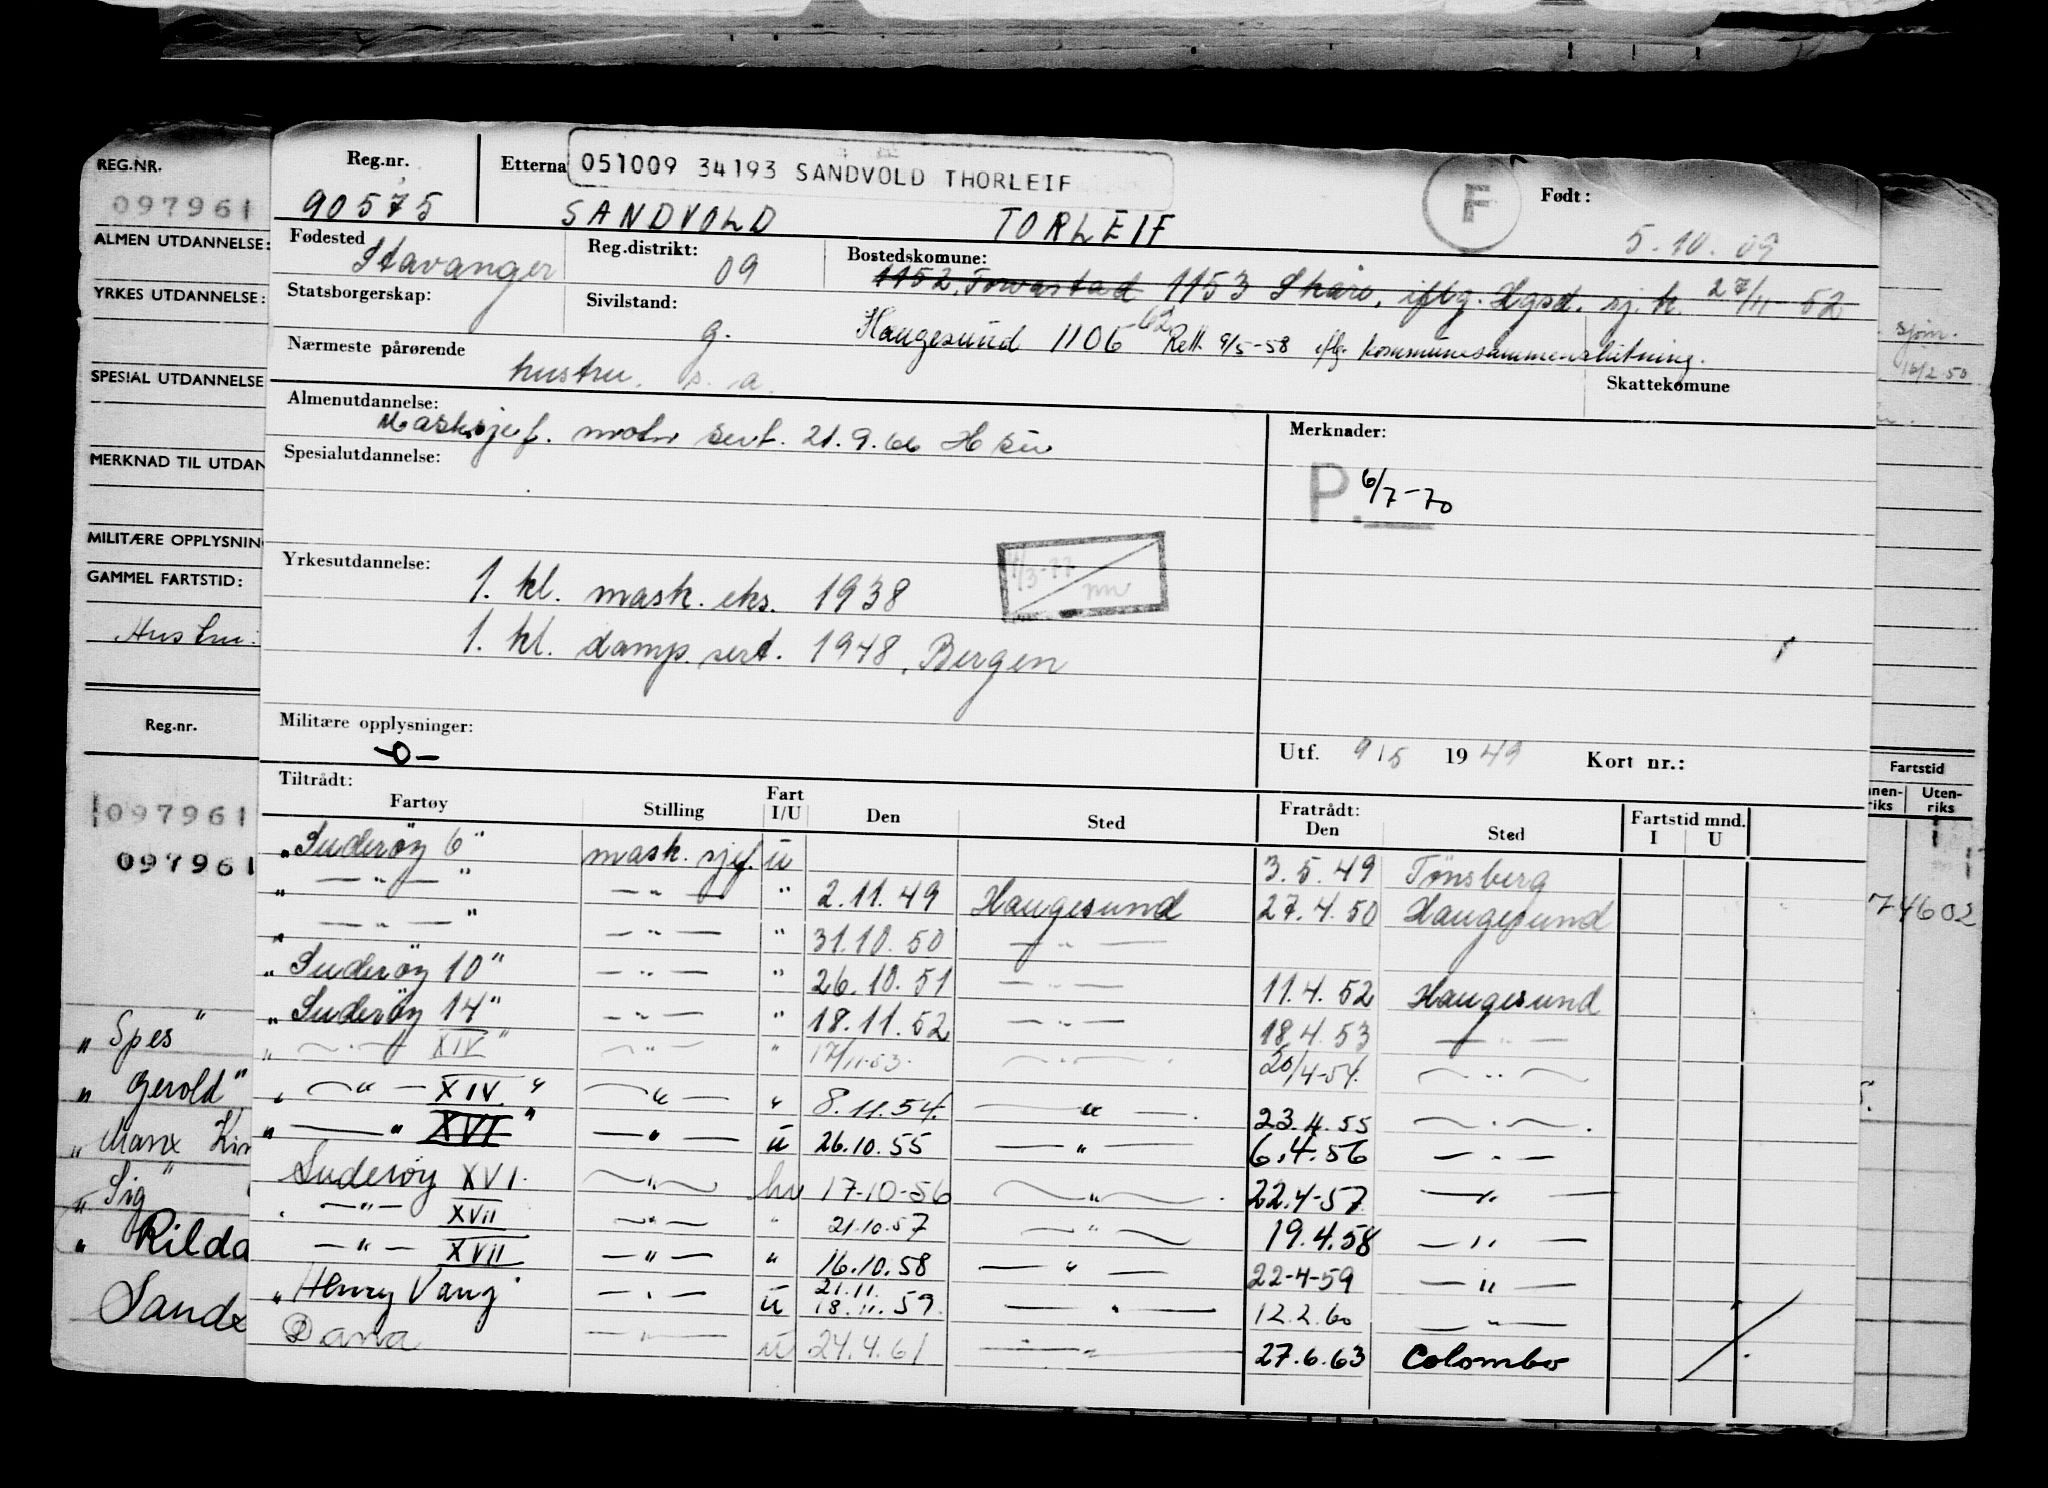 REG.NR.
097961
ALMEN UTDANNELSE:
YRKES UTDANNELSE:
SPESIAL UTDANNELSE
MERKNAD TIL UTDAN
MILITÆRE OPPLYSNIN
GAMMEL FARTSTID:
Hustru:
Reg.nr.
097961
097961
"Spes"
"Gerold"
"Manx Kin
"Sig"
"Rilda
Sandv
Reg.nr. Etterna 051009 34193 SANDVOLD THORLEIF F Født:
90575 SANDVOLD TORLEIF 5.10.09
Fødested Stavanger Reg.distrikt: 09 Bostedskomune: 1152, Torvastad 1153 Skåre, iflg. Hgsd. sj.k. 27/11-52
Statsborgerskap: Sivilstand: g. Haugesund 1106 Rett 9/5-58 iflg. kommunesammenslutning.
Nærmeste pårørende hustru. s. a. Skattekomune
Almenutdannelse: Masksjef. motor sert. 21.9.66 Merknader:
Spesialutdannelse: P. 6/7-70
Yrkesutdannelse: 1. kl. mask. eks. 1938
1. kl. damp. sert. 1948, Bergen
Militære opplysninger:
-0-
Utf. 9/5 1949 Kort nr.:
Tiltrådt: Fratrådt: Fartstid mnd.
Fartøy Stilling Fart I/U Den Sted Den Sted I U
"Suderøy 6" mask. sjef. u 3.5.49 Tønsberg
" — " — " — " — " 2.11.49 Haugesund 27.4.50 Haugesund
" — " — " — " — " 31.10.50 — " —
"Suderøy 10" — " — " 26.10.51 — " — 11.4.52 Haugesund
"Suderøy 14" — " — " 18.11.52 — " — 18.4.53 — " —
" — " — XIV" — " — " 17/11-53. — " — 20/4-54. — " —
" — " — XIV" — " — " 8.11.54. — " — 23.4.55 — " —
" — " XVI" — " — u 26.10.55 — " — 6.4.56 — " —
Suderøy XVI. — " — hv 17-10-56 — " — 22.4-57 — " —
" — " — XVII — " — " 21.10.57 — " — 19.4.58 — " —
— " — XVII — " — " 16.10.58 — " — 22-4-59 — " —
"Henry Vang" — " — u 21.11. 18.11.59. — " — 12.2.60 — " —
Dana — " — u 24.4.61 — " — 27.6.63 Colombo
sjøm.
16/2.50
Fartstid
nnen-riks Uten-riks
74602